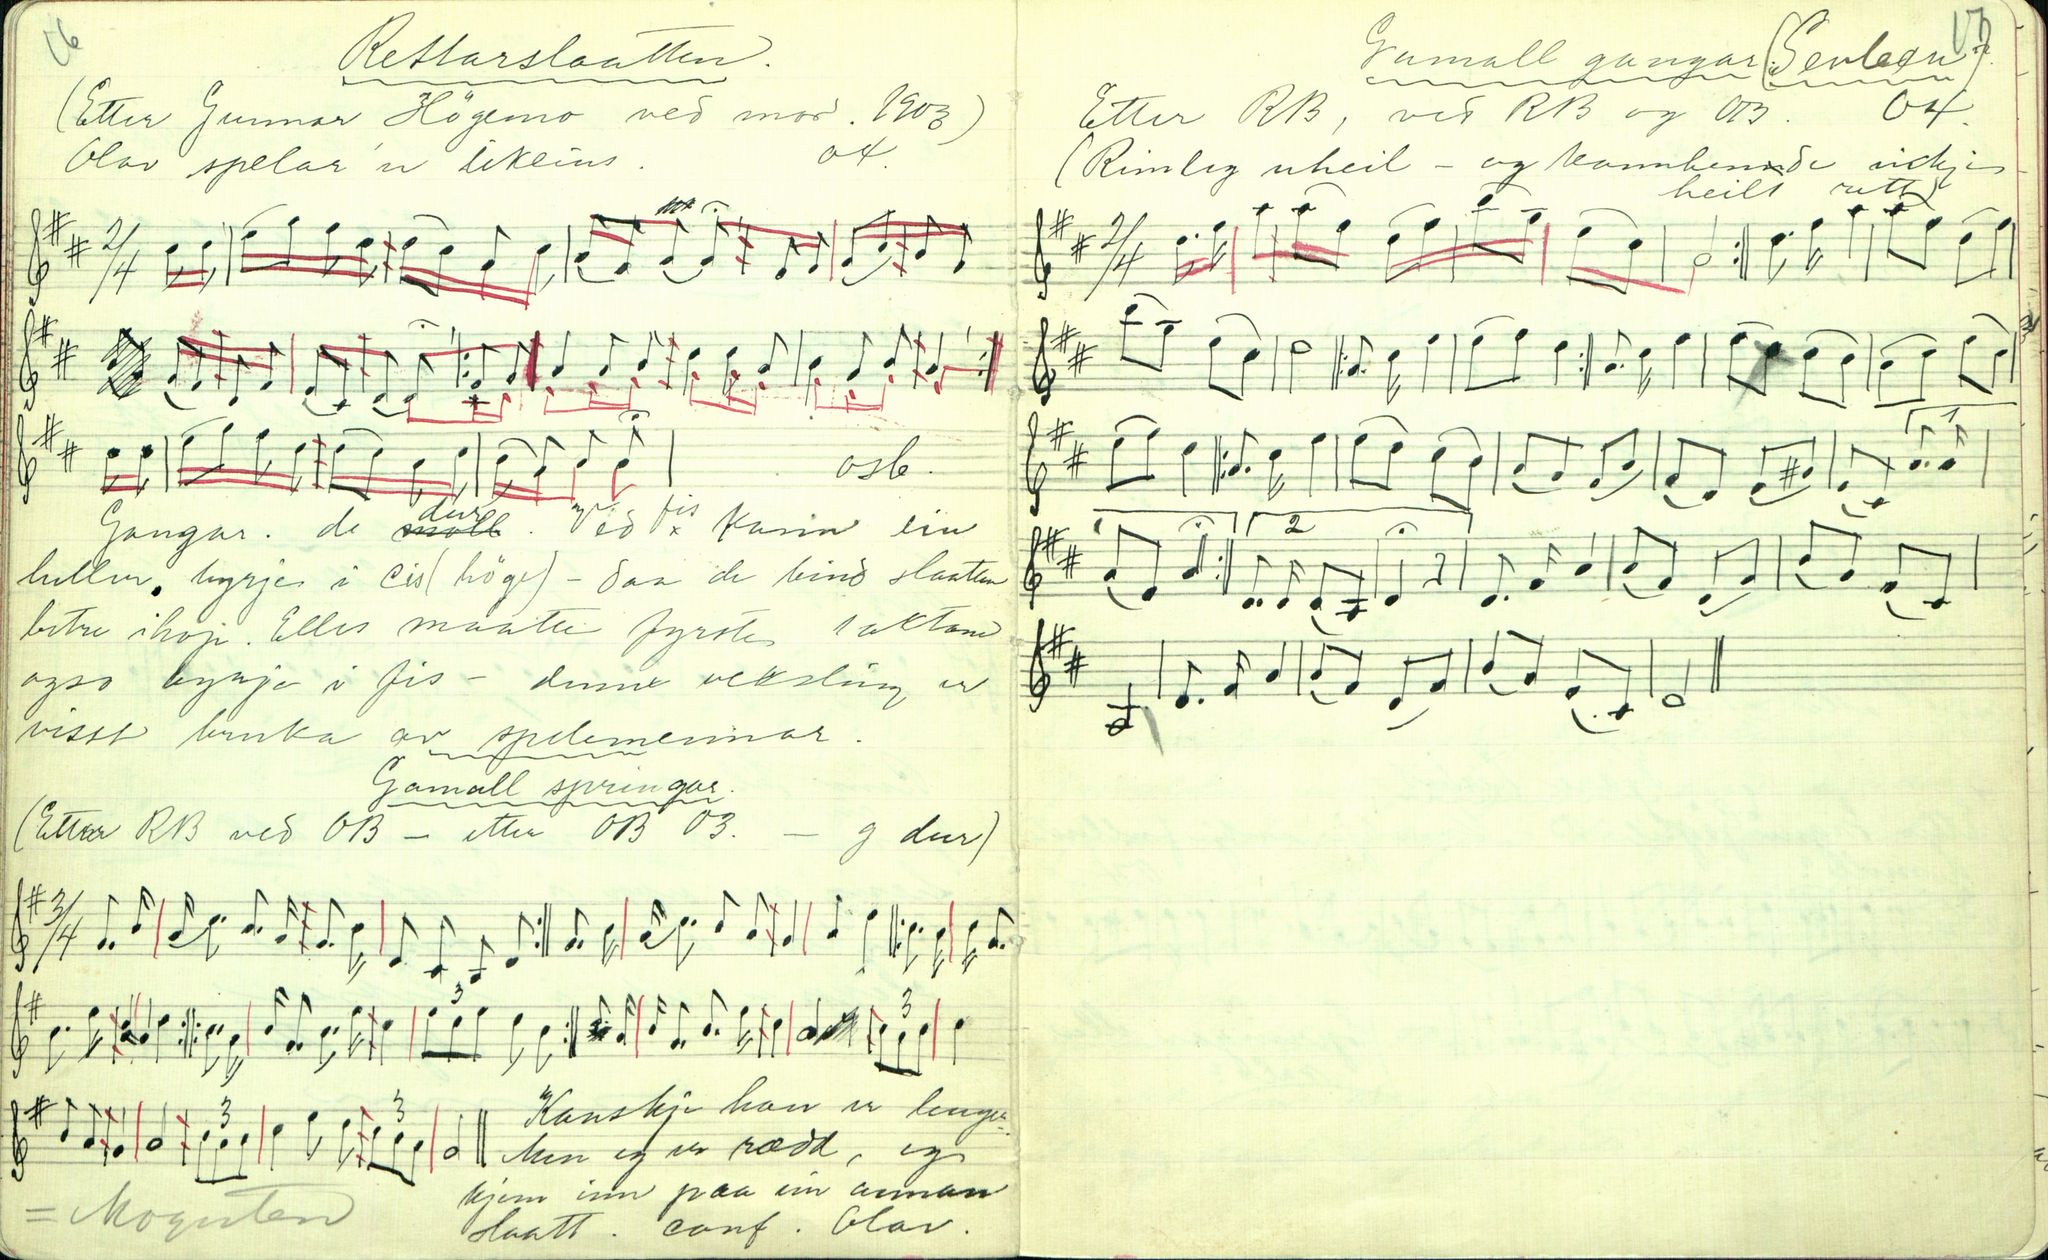 16
Rettarslaatten.
(Etter Gunnar Högemo ved mor. 1903)
Olav spelar 'n likeins. 04.
2/4
osb.
Gangar. de moll dur. Ved x fis kann ein
heller byrje i cis (höge) - daa de bind slaatten
betre ihop. Elles maatte fyrste taktane
ogso byrje i fis - denne veksling er
visst bruka av spelemennar.
Gamall springar.
(Etter RB ved OB - etter OB 03. - g dur)
3/4
3
3
3
3
Kanskje han er lenger.
Men eg er rædd, eg
kjem inn paa ein annan
slaatt. conf. Olav.
17
Gamall gangar.
Etter RB, ved RB og OB. 04.
(Rimleg uheil - og kannhenda ikkje
heilt rett)
2/4
1
1
2